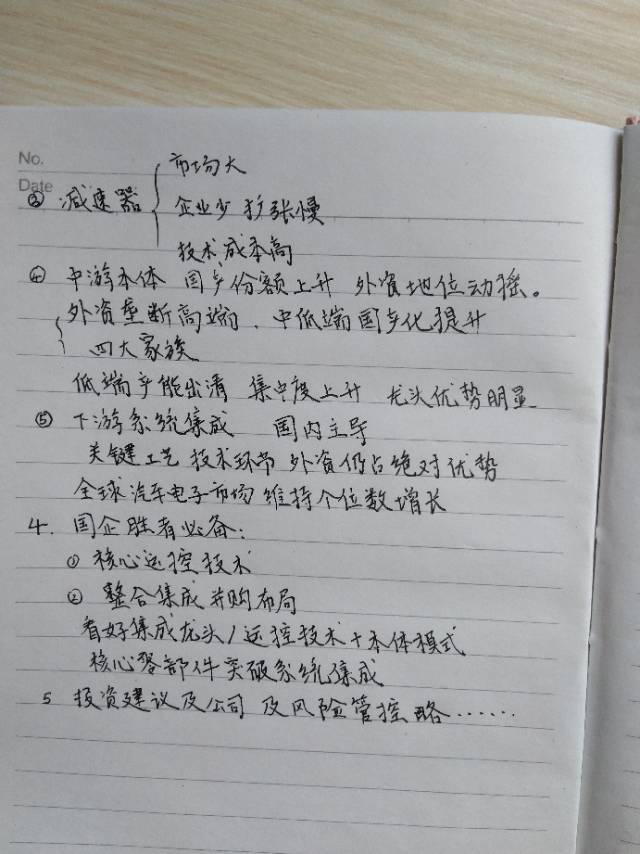 No.
Date
市场大
③ 减速器 企业少 扩张慢
技术成本高
④ 中游本体 国产份额上升 外资地位动摇。
外资垄断高端、中低端国产化提升
四大家族
低端产能出清 集中度上升 龙头优势明显
⑤ 下游系统集成 国内主导
关键工艺 技术环节 外资仍占绝对优势
全球汽车电子市场 维持个位数增长
4. 国企胜者必备:
① 核心运控技术
② 整合集成 并购布局
看好集成龙头/运控技术+本体模式
核心零部件突破系统集成
5 投资建议及公司 及风险管控 略······